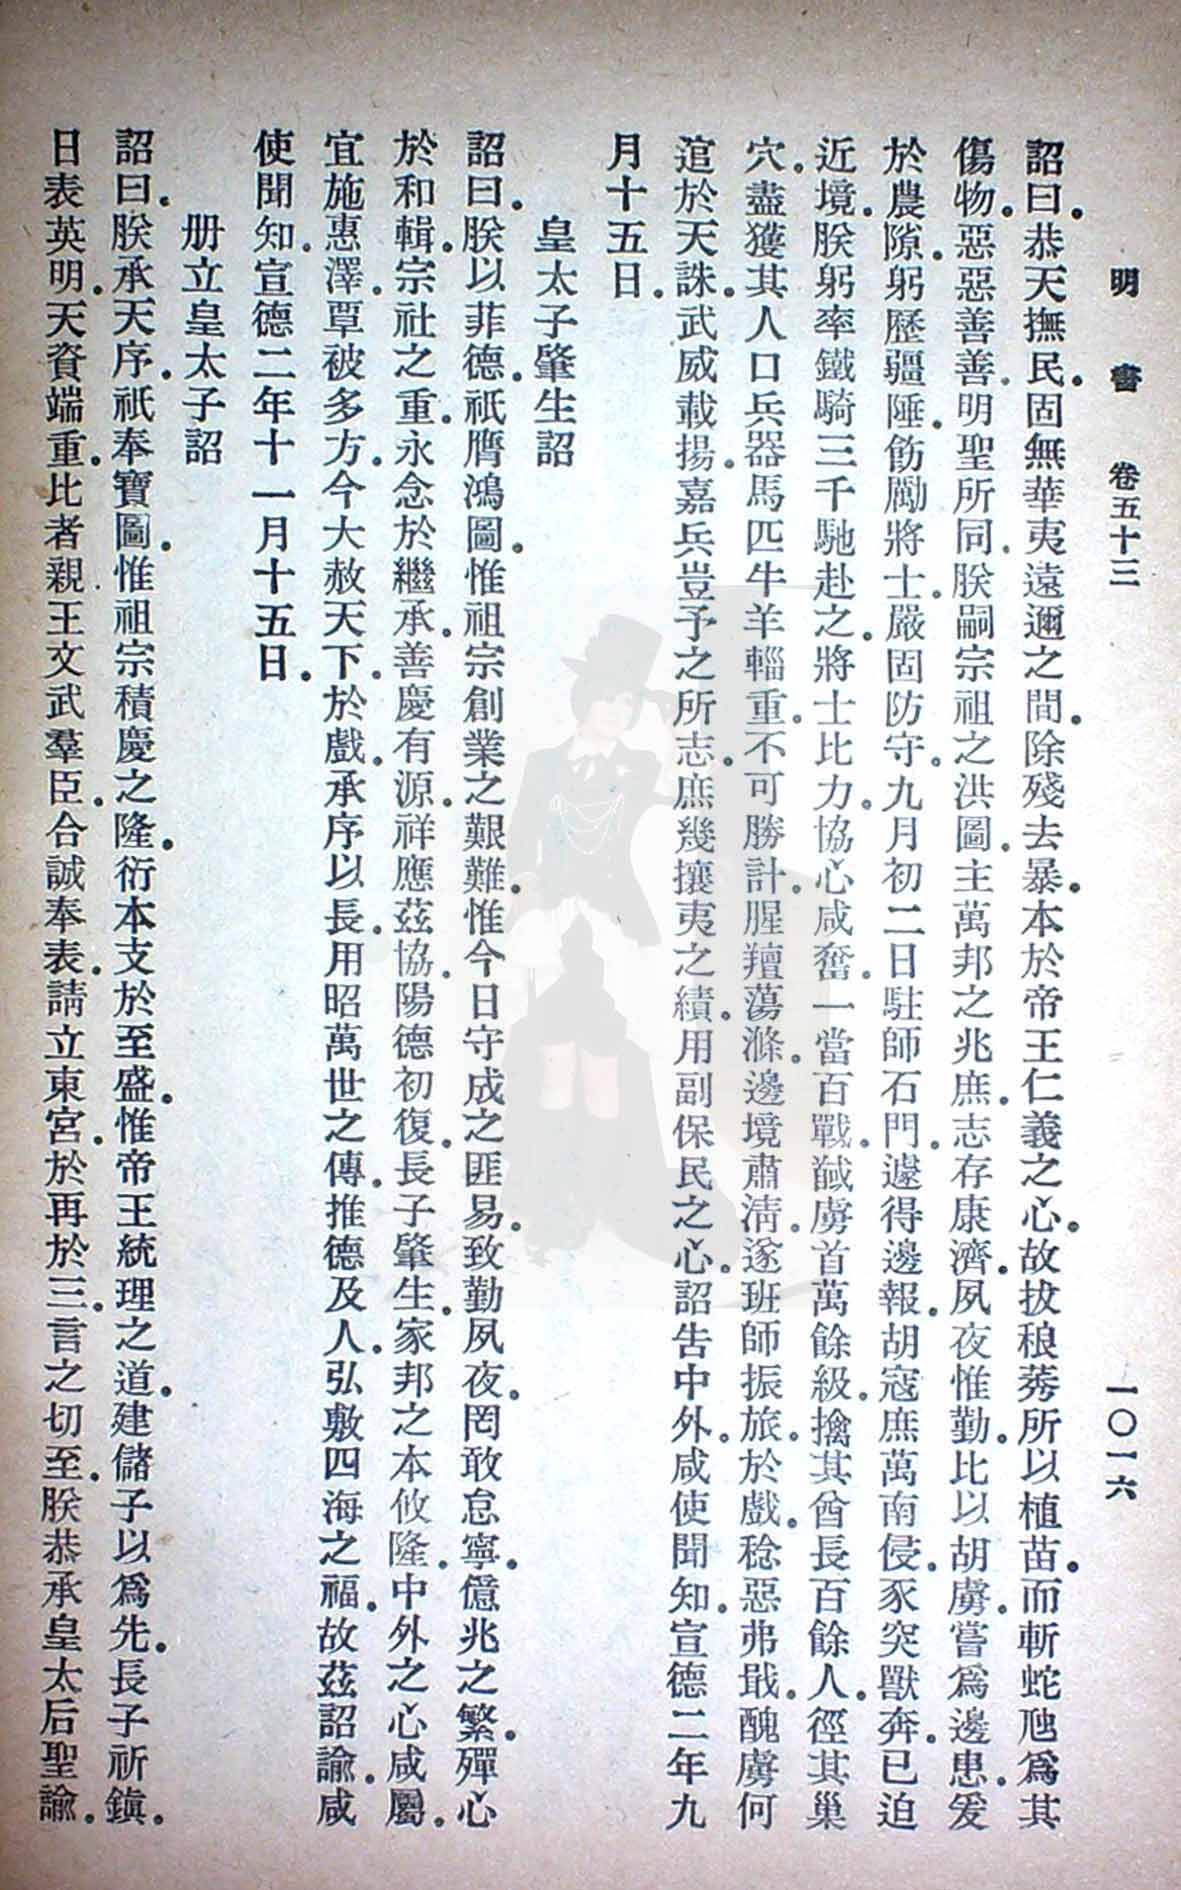 明書　卷五十三　一〇一六
詔曰。恭天撫民。固無華夷遠邇之間。除殘去暴。本於帝王仁義之心。故拔稂莠所以植苗。而斬蛇虺爲其
傷物。惡惡善善。明聖所同。朕嗣宗祖之洪圖。主萬邦之兆庶。志存康濟。夙夜惟勤。比以胡虜。嘗爲邊患。爰
於農隙。躬歷疆陲。飭勵將士。嚴固防守。九月初二日駐師石門。遽得邊報。胡寇庶萬南侵。豕突獸奔。已迫
近境。朕躬率鐵騎三千馳赴之。將士比力。協心咸奮。一當百戰。馘虜首萬餘級。擒其酋長百餘人。徑其巢
穴。盡獲其人口兵器馬匹牛羊輜重。不可勝計。腥羶蕩滌。邊境肅淸。遂班師振旅。於戲。稔惡弗戢。醜虜何
逭於天誅。武威載揚。嘉兵豈予之所志。庶幾攘夷之績。用副保民之心。詔吿中外。咸使聞知。宣德二年九
月十五日。
皇太子肇生詔
詔曰。朕以菲德。祇膺鴻圖。惟祖宗創業之艱難。惟今日守成之匪易。致勤夙夜。罔敢怠寧。億兆之繁。殫心
於和輯。宗社之重。永念於繼承。善慶有源。祥應茲協。陽德初復。長子肇生。家邦之本攸隆。中外之心咸屬。
宜施惠澤。覃被多方。今大赦天下。於戲。承序以長。用昭萬世之傳。推德及人。弘敷四海之福。故茲詔諭。咸
使聞知。宣德二年十一月十五日。
册立皇太子詔
詔曰。朕承天序。祇奉寶圖。惟祖宗積慶之隆。衍本支於至盛。惟帝王統理之道。建儲子以爲先。長子祈鎭。
日表英明。天資端重。比者親王文武羣臣。合誠奉表。請立東宮。於再於三。言之切至。朕恭承皇太后聖諭。